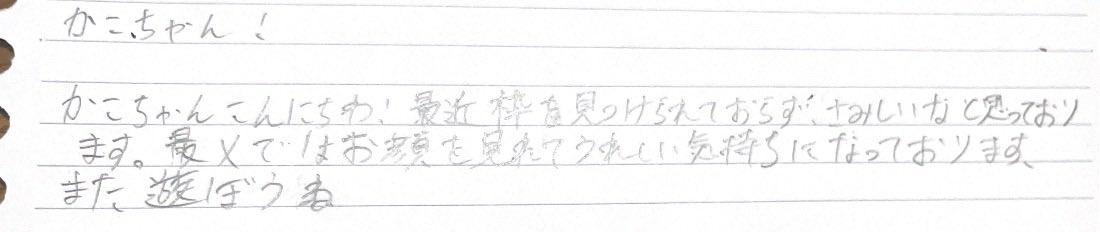 かこちゃん!
かこちゃんこんにちわ!最近枠を見つけられておらず、さみしいなと思っており
ます。最Xではお顔を見れてうれしい気持ちになっております、
また遊ぼうね